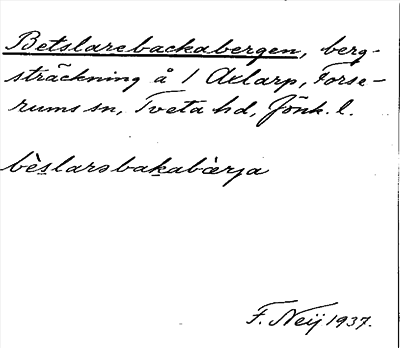 Betslarebackabergen, berg-
sträckning å 1 Axlarp, Forse-
rums sn, Tveta hd, Jönk. l.
bèslarsbakabærja
F. Neij 1937.